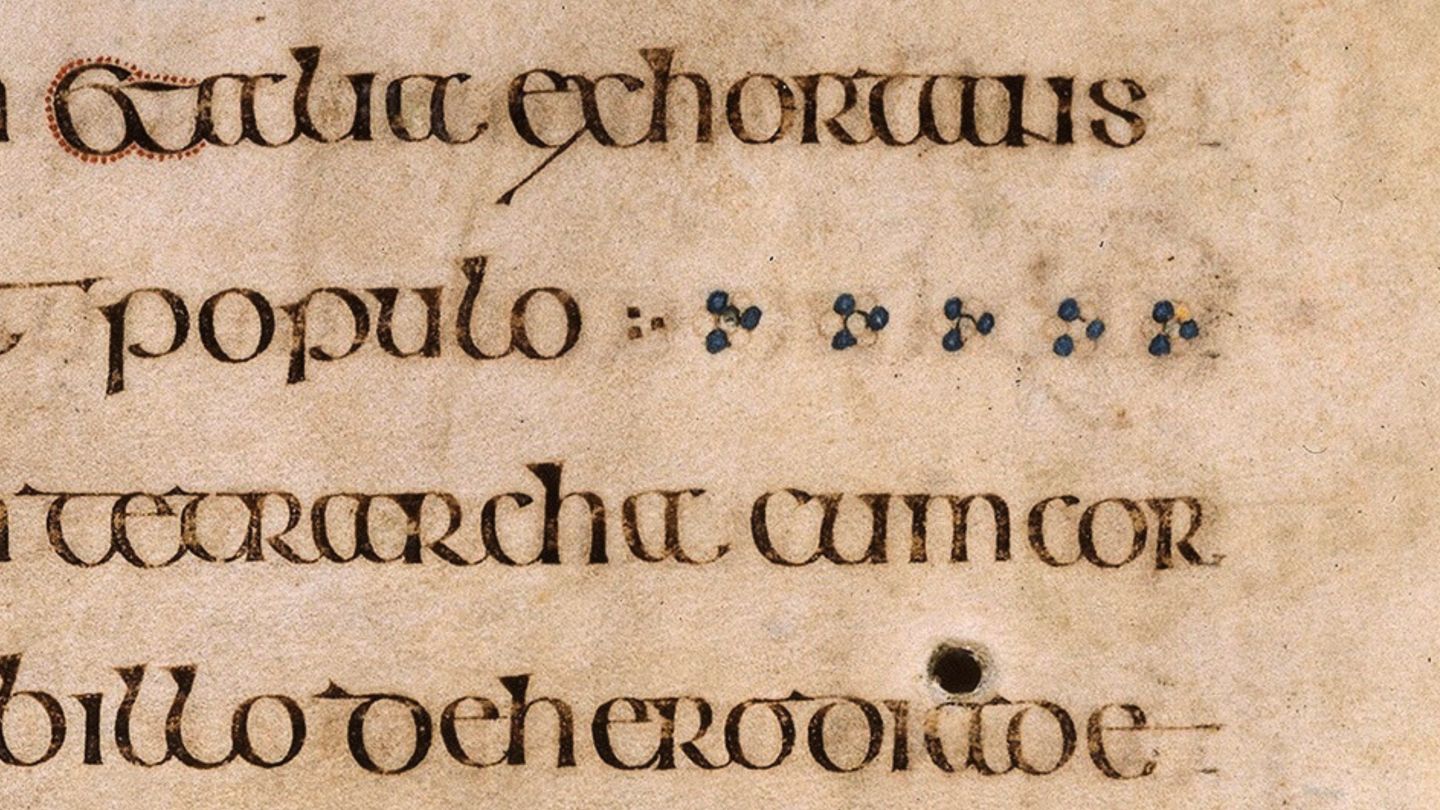 & alia exhortans
populo
tetrarcha cum cor
billo de herodiade